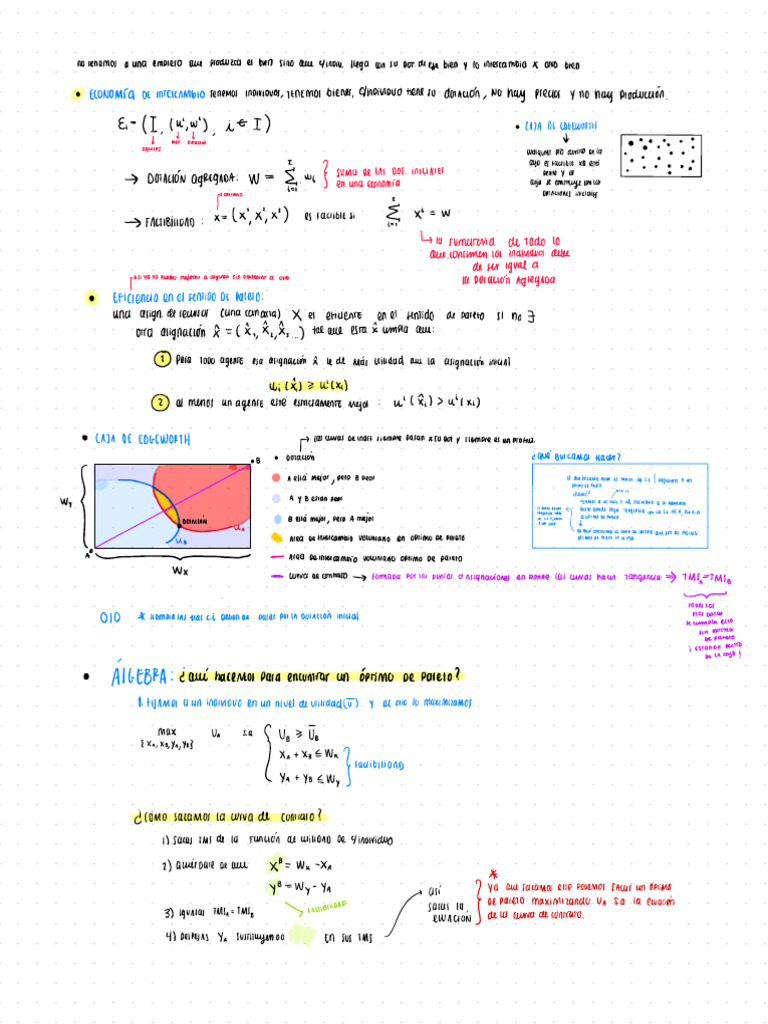 no tenemos a una empresa que produzca el bien sino que c/indiv. llega con su dot de ese bien y lo intercambia x otro bien
• ECONOMÍA DE INTERCAMBIO tenemos individuos, tenemos bienes, c/individuo tiene su dotación, no hay precios y no hay producción.
Ei = (I, (uⁱ, wⁱ), i ∈ I)
→ DOTACIÓN AGREGADA: W = Σ wi
i=1
I
suma de las dot. iniciales
en una economía
→ FACTIBILIDAD: x = (x¹, x², x³) es factible si Σ xⁱ = W
i=1
I
la sumatoria de todo lo
que consumen los individuos debe
de ser igual a
la dotación agregada
• CAJA DE EDGEWORTH
Eficiencia en el sentido de Pareto:
una asign. de recursos (una canasta) X es eficiente en el sentido de pareto si no ∃
otra asignación x̂ = (x̂₁, x̂₂, x̂₃...) tal que esta x̂ cumpla que:
① Para todo agente esa asignación x̂ le de más utilidad que la asignación inicial
ui(x̂i) ≥ uⁱ(xi)
② al menos un agente esté estrictamente mejor: uⁱ(x̂i) > uⁱ(xi)
• CAJA DE EDGEWORTH
Wy
A
B
DOTACIÓN
UA
UB
Wx
• Dotación
A está mejor, pero B peor
A y B están peor
B está mejor, pero A mejor
Area de intercambio voluntario en óptimo de pareto
Area de intercambio voluntario óptimo de pareto
Curva de contrato → formada por los puntos o asignaciones en donde las curvas hacen tangencia ⇒ TMSA = TMSB
todos los
ptos donde
se cumpla esto
son óptimos
de pareto
¡estando dentro
de la caja!
¿Qué buscamos hacer?
OJO * siempre las tres C.I. deben de pasar por la dotación inicial
• ÁLGEBRA: ¿qué hacemos para encontrar un óptimo de pareto?
1. Fijamos a un individuo en un nivel de utilidad (ū) y al otro lo maximizamos
max UA s.a
{xA, xB, yA, yB}
UB ≥ ŪB
xA + xB ≤ Wx
yA + yB ≤ Wy
factibilidad
¿Cómo sacamos la curva de contrato?
1) Sacas TMS de la función de utilidad de c/individuo
2) Acuérdate de que xᴮ = Wx - xA
yᴮ = Wy - yA
factibilidad
3) Igualas TMSA = TMSB
4) Despejas yA sustituyendo en sus TMS
así
sacas la
ecuación
*
Ya que sacamos esto podemos sacar un óptimo
de pareto maximizando UA s.a la ecuación
de la curva de contrato.